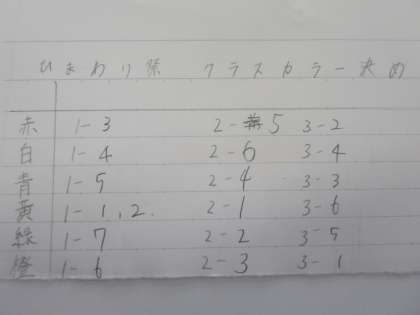 ひまわり隊 クラスカラー決め
赤 1-3 2-5 3-2
白 1-4 2-6 3-4
青 1-5 2-4 3-3
黄 1-1,2. 2-1 3-6
緑 1-7 2-2 3-5
橙 1-6 2-3 3-1